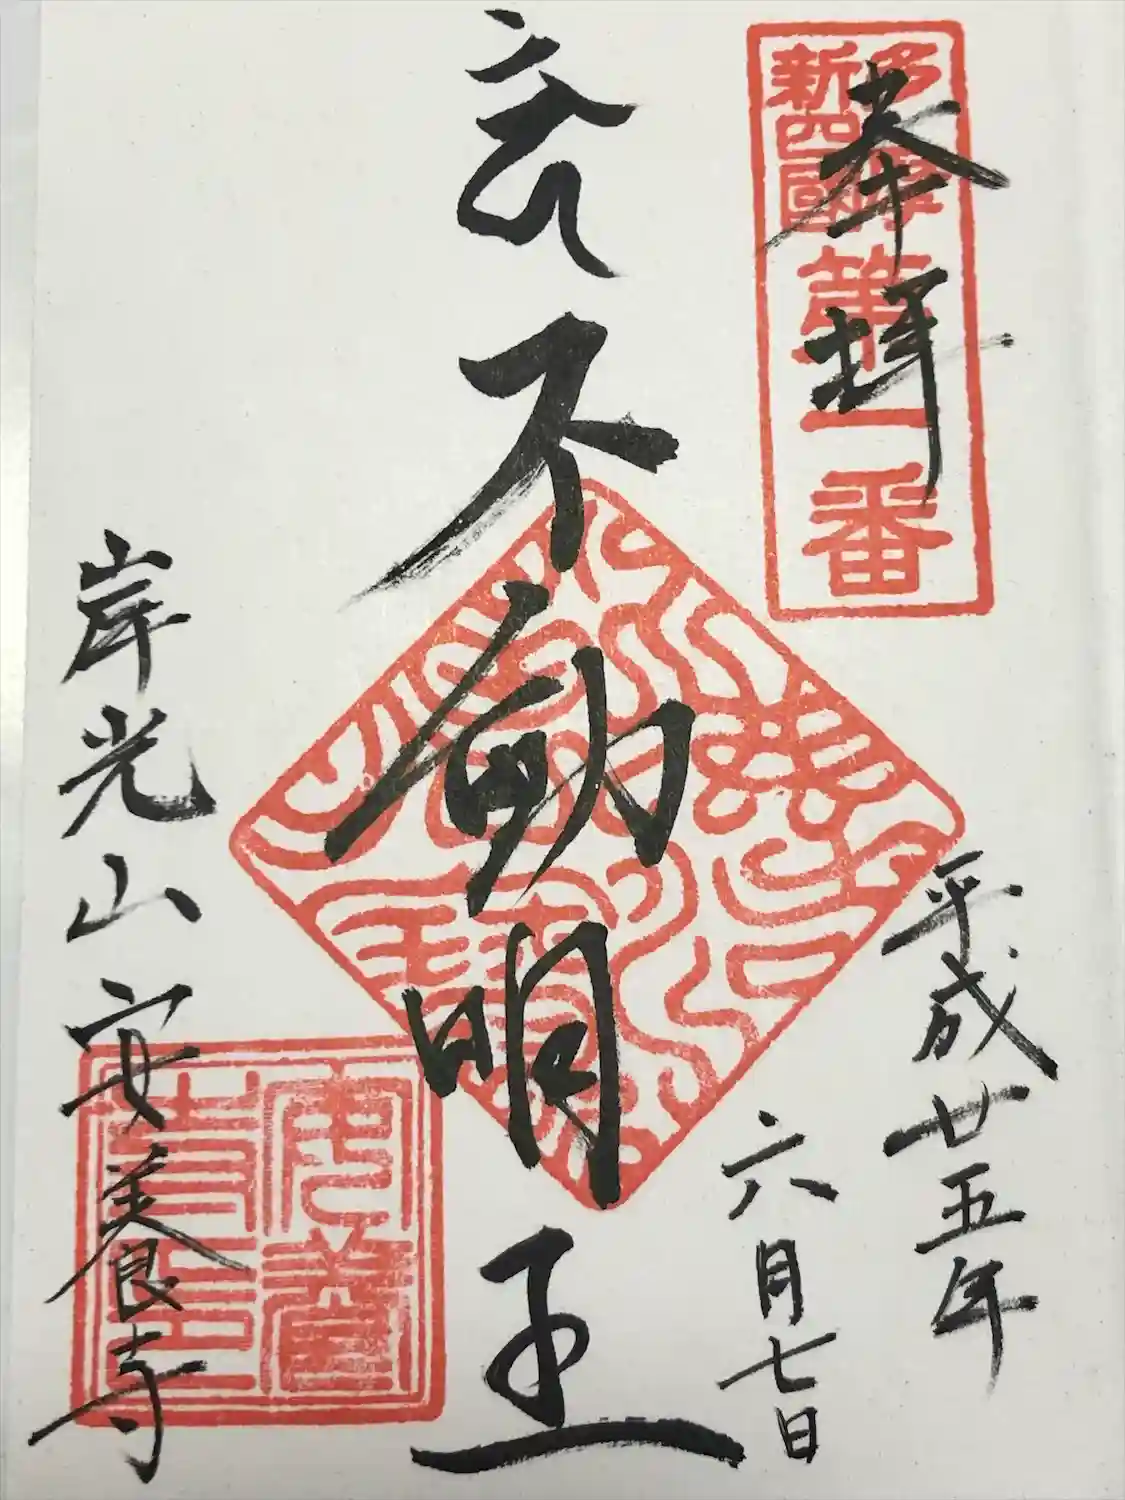 奉拝
多摩新四國第一番
平成廿五年
六月七日
不動明王
岸光山安養寺
安養寺印